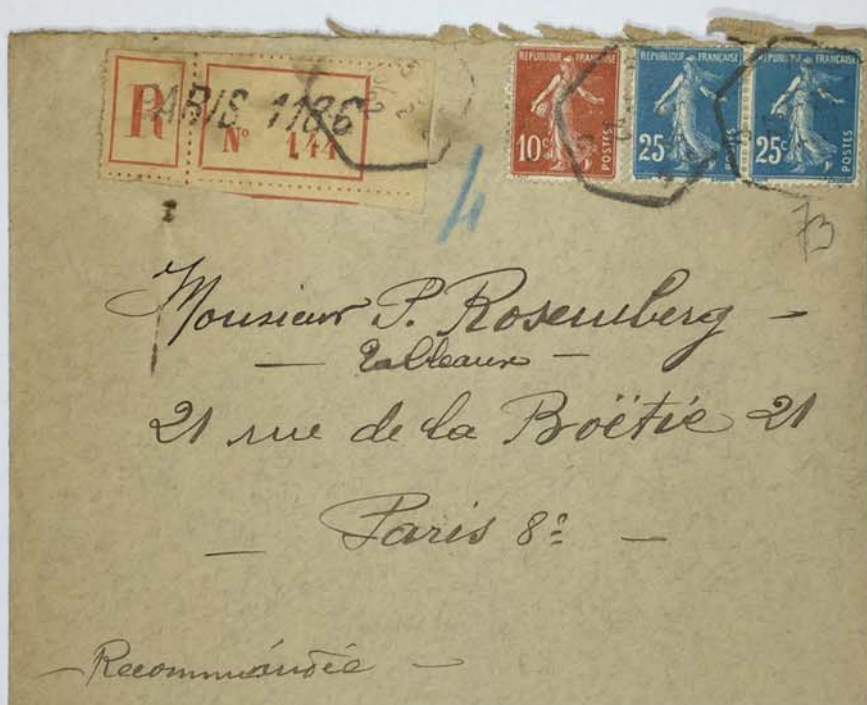 R PARIS 1186
N° 144
REPUBLIQUE FRANÇAISE
10c POSTES
REPUBLIQUE FRANÇAISE
25 POSTES
REPUBLIQUE FRANÇAISE
25c POSTES
73
Monsieur P. Rosemberg -
- Tableaux -
21 rue de la Boëtie 21
- Paris 8e -
- Recommandée -